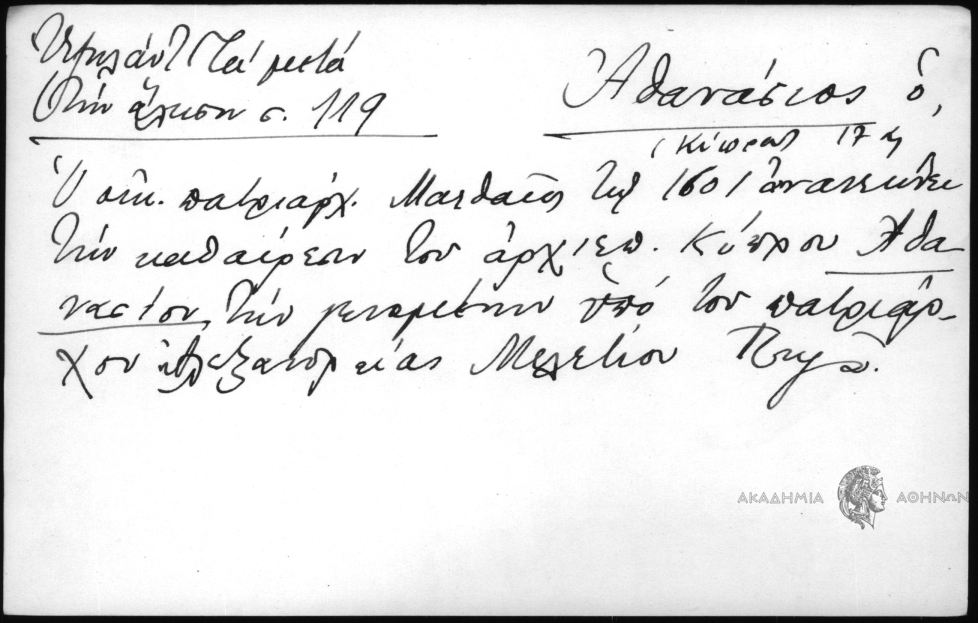 Ὑψηλάντ. Τά μετά
τήν ἅλωσιν σ. 119
Ἀθανάσιος ὁ,
Κύπρου 17
Ὁ οἰκ. πατριάρχ. Ματθαῖος τῷ 1601 ἀνακοινοῖ
τήν καθαίρεσιν τοῦ ἀρχιεπ. Κύπρου Ἀθα
νασίου, τήν γενομένην ὑπό τοῦ πατριάρ-
χου Ἀλεξανδρείας Μελετίου Πηγᾶ.
ΑΚΑΔΗΜΙΑ ΑΘΗΝΩΝ